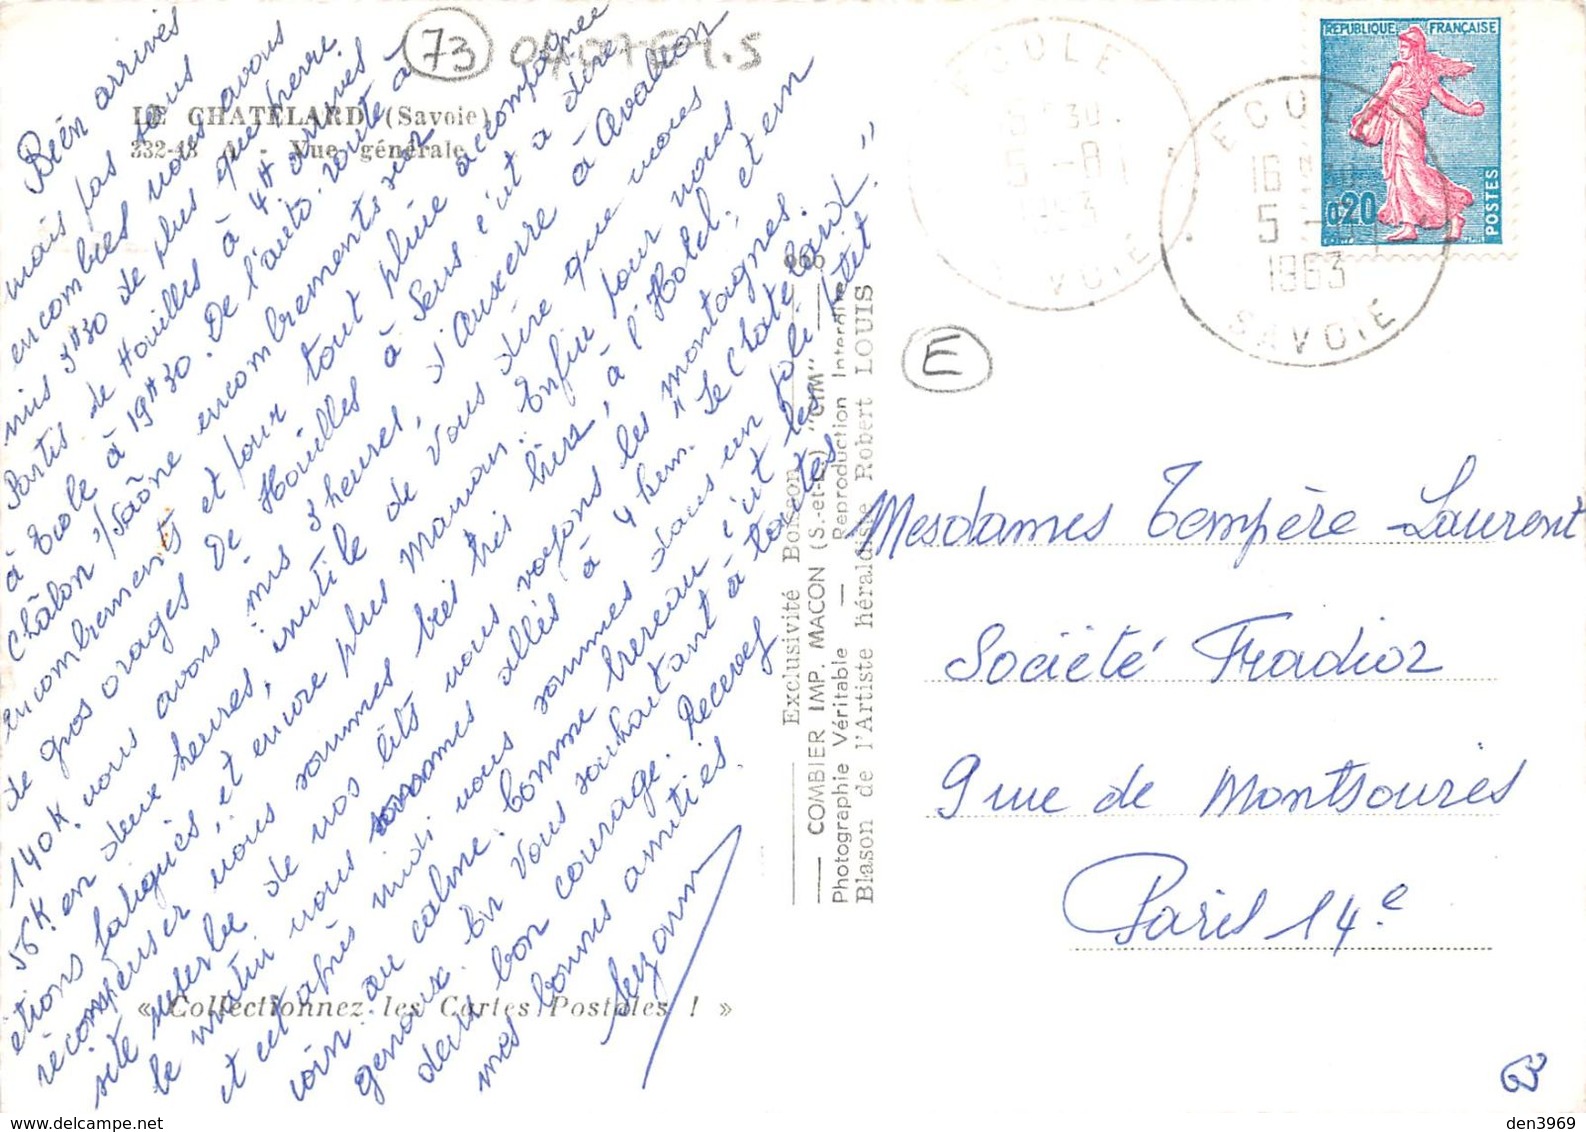 73
LE CHATELARD (Savoie)
332-43 A - Vue générale
Bien arrivés
mais pas sans
encombres nous avons
mis 3H30 de plus que prevu
Partis de Houilles à 4H arrivés
à Ecole à 19H30. De l'auto-route à
Châlon s/Saône encombrements sur
encombrements et pour tout pluie accompagnée
de gros orages. De Houilles à Sens c'est à dire
140K. nous avons mis 3 heures, d'Auxerre à Avallon
55K. en deux heures, inutile de vous dire que nous
étions fatigués, et encore plus maman. Enfin pour nous
récompenser nous sommes très très bien, à l'Hotel, et en
site superbe de nos lits nous voyons les montagnes.
le matin nous sommes allés à 4 km. "Le Chatelard"
et cet après midi nous sommes dans un joli petit
coin au calme. Comme hereau c'est les
genoux. En vous souhaitant à toutes
deux bon courage. Recevez
mes bonnes amitiés
Suzanne
« Collectionnez les Cartes Postales ! »
Exclusivité
COMBIER IMP. MACON (S.-et-L.) "CIM"
Photographie Véritable — Reproduction Interdite
Blason de l'Artiste héraldiste Robert LOUIS
ECOLE
5 -8
1963
SAVOIE
ECOLE
16H30
5 -8
1963
SAVOIE
REPUBLIQUE FRANÇAISE
0,20
POSTES
E
Mesdames Tempère-Laurent
Société Fradior
9 rue de Montsouris
Paris 14e
den3969